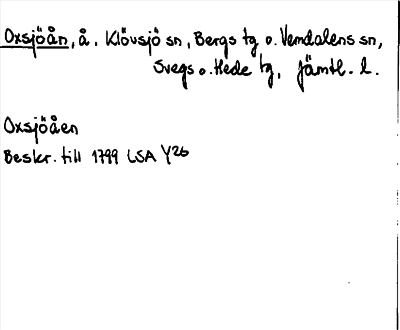 Oxsjöån, å. Klövsjö sn, Bergs tg o. Vemdalens sn,
Svegs o. Hede tg, Jämtl. l.
Oxsjöåen
Beskr. till 1799 LSA Y26